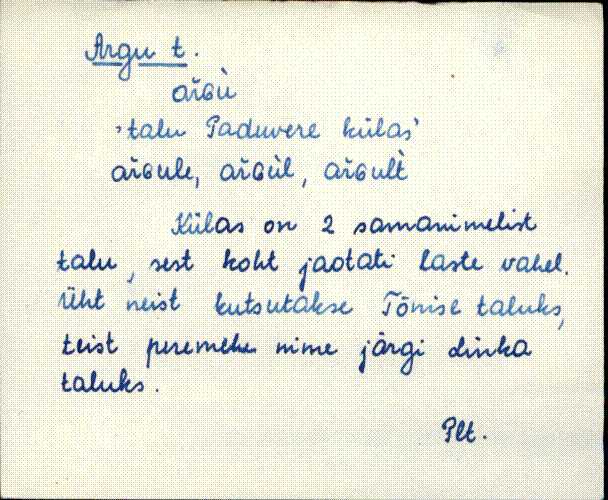 Argu t.
ar̆ɢù
'talu Paduvere külas'
ar̆ɢule, ar̆ɢùl, ar̆ɢult̀
Külas on 2 samanimelist
talu, sest koht jaotati laste vahel.
Üht neist kutsutakse Tõnise taluks,
teist peremehe nime järgi Dinka
taluks.
Plt.